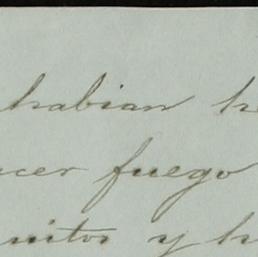 habian h
cer fuego
nitos y h